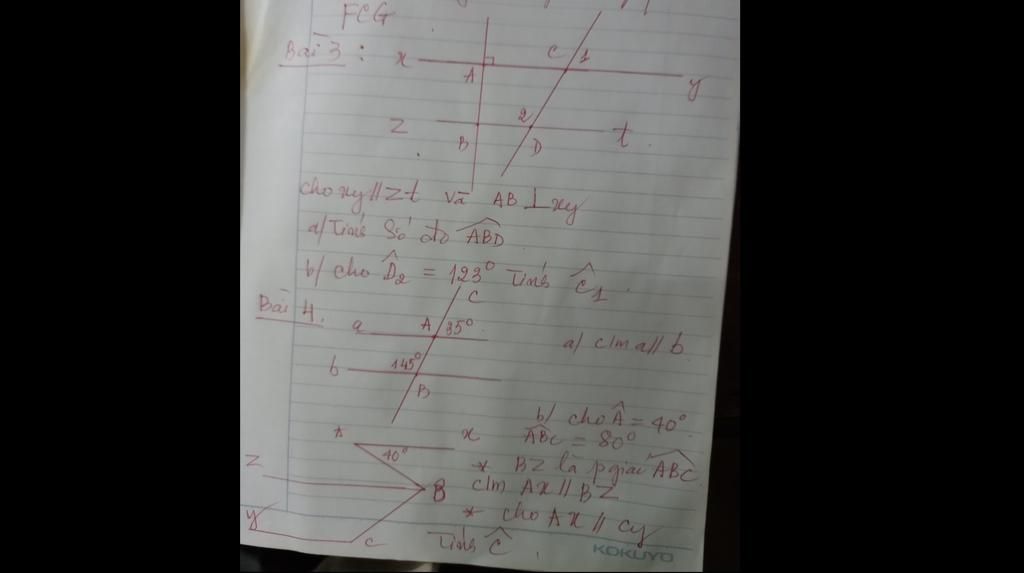 FCG
Bài 3 :
x A C 1 y
z B 2 D t
cho xy // zt và AB ⊥ xy
a/ Tính số đo ABD
b/ cho D̂2 = 123° Tính Ĉ1.
Bài 4.
c
a A 35°
b 145° B
a/ c/m a // b
b/ cho Â = 40°
ABC = 80°
A x 40°
z B
y c
* BZ là pgiác ABC
c/m Ax // BZ
* cho Ax // cy
Tính Ĉ.
KOKUYO